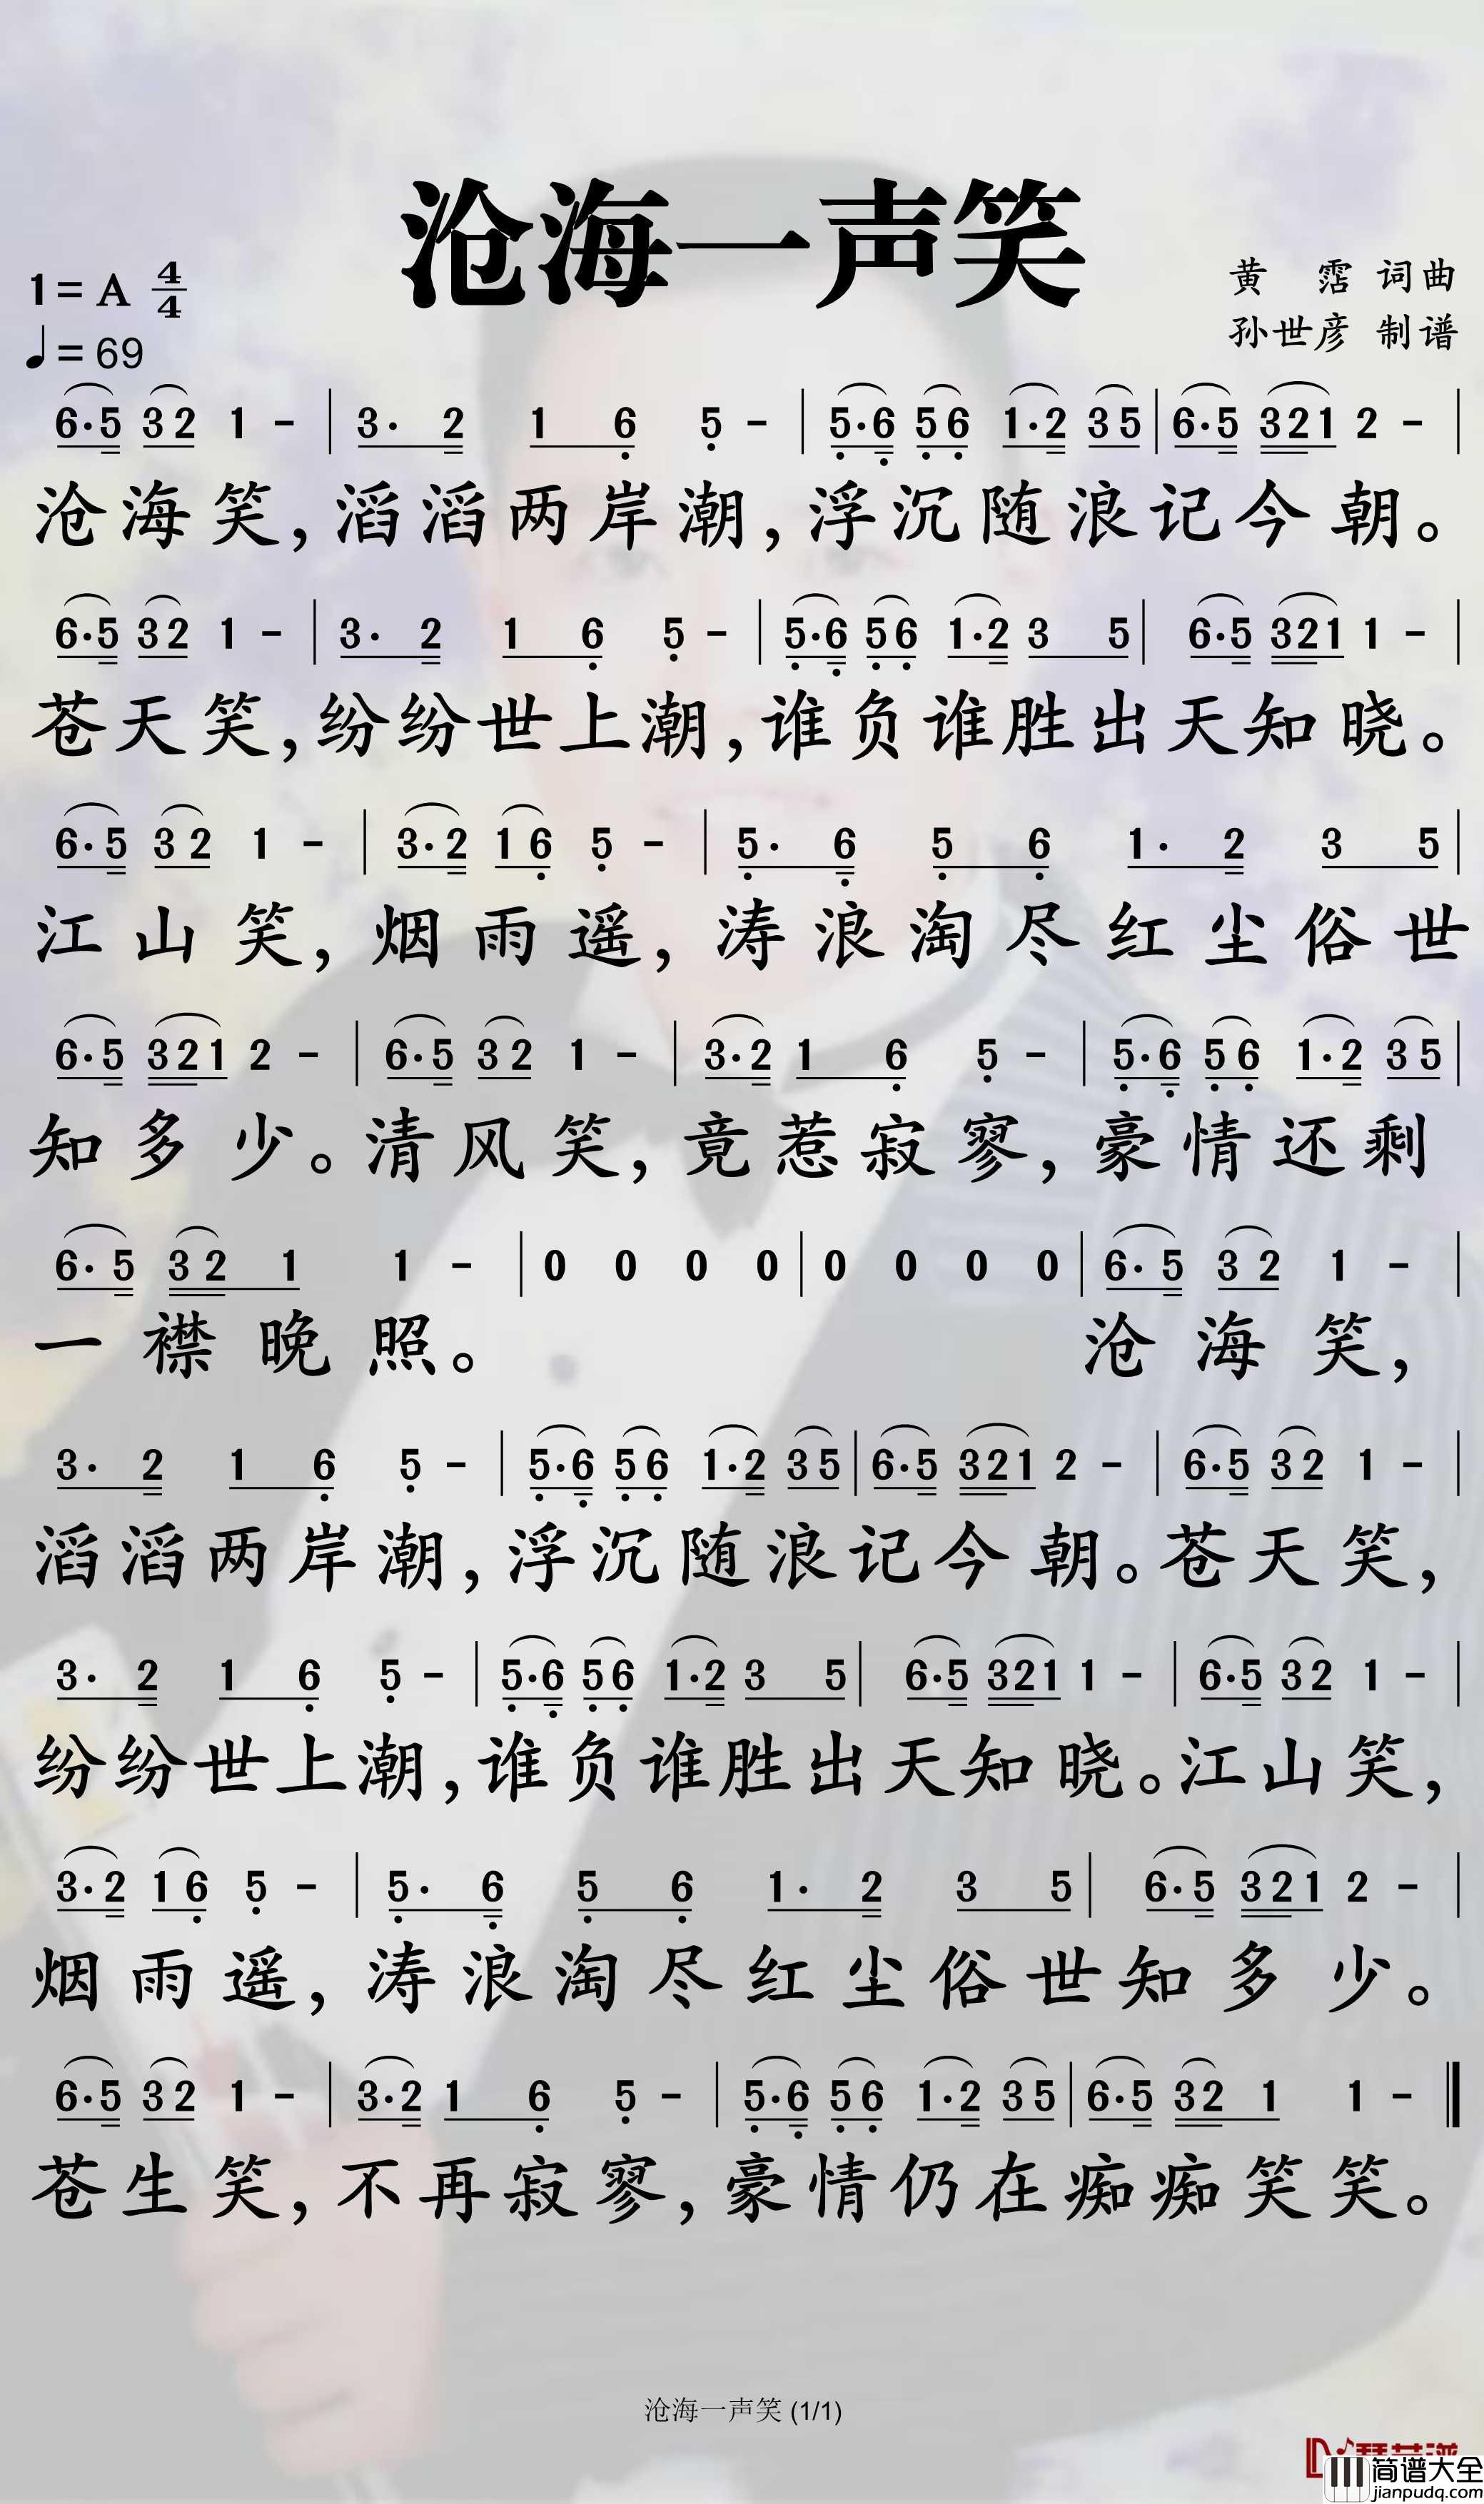 沧海一声笑
1=A 4/4
♩=69
黄 霑 词曲
孙世彦 制谱
6·5 32 1 - | 3· 2 1 6 5 - | 5·6 56 1·2 35 | 6·5 321 2 - |
沧海笑,滔滔两岸潮,浮沉随浪记今朝。
6·5 32 1 - | 3· 2 1 6 5 - | 5·6 56 1·2 3 5 | 6·5 321 1 - |
苍天笑,纷纷世上潮,谁负谁胜出天知晓。
6·5 32 1 - | 3·2 16 5 - | 5· 6 5 6 1· 2 3 5 |
江山笑,烟雨遥,涛浪淘尽红尘俗世
6·5 321 2 - | 6·5 32 1 - | 3·2 1 6 5 - | 5·6 56 1·2 35 |
知多少。清风笑,竟惹寂寥,豪情还剩
6·5 32 1 1 - | 0 0 0 0 | 0 0 0 0 | 6·5 32 1 - |
一襟晚照。 沧海笑,
3· 2 1 6 5 - | 5·6 56 1·2 35 | 6·5 321 2 - | 6·5 32 1 - |
滔滔两岸潮,浮沉随浪记今朝。苍天笑,
3· 2 1 6 5 - | 5·6 56 1·2 3 5 | 6·5 321 1 - | 6·5 32 1 - |
纷纷世上潮,谁负谁胜出天知晓。江山笑,
3·2 16 5 - | 5· 6 5 6 1· 2 3 5 | 6·5 321 2 - |
烟雨遥,涛浪淘尽红尘俗世知多少。
6·5 32 1 - | 3·2 1 6 5 - | 5·6 56 1·2 35 | 6·5 32 1 1 - ‖
苍生笑,不再寂寥,豪情仍在痴痴笑笑。
沧海一声笑 (1/1)
简谱大全
jianpudq.com